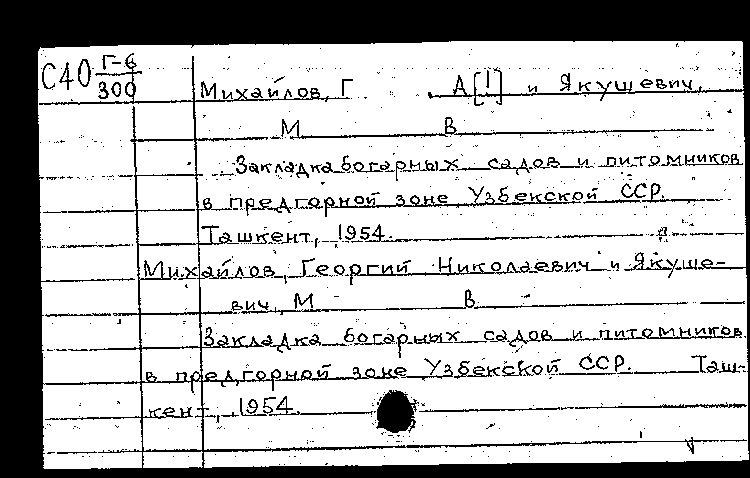 С40 Г-6
300
Михайлов, Г. А[!] и Якушевич,
М В
Закладка богарных садов и питомников
в предгорной зоне Узбекской ССР.
Ташкент, 1954.
Михайлов, Георгий Николаевич и Якуше-
вич, М В
Закладка богарных садов и питомников
в предгорной зоне Узбекской ССР. Таш-
кент, 1954.